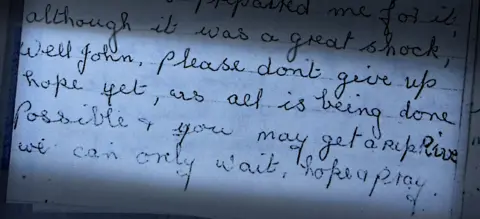 prepared me for it,
although it was a great shock,
Well John, please don't give up
hope yet, as all is being done
Possible & you may get a reprieve
we can only wait, hope & pray.